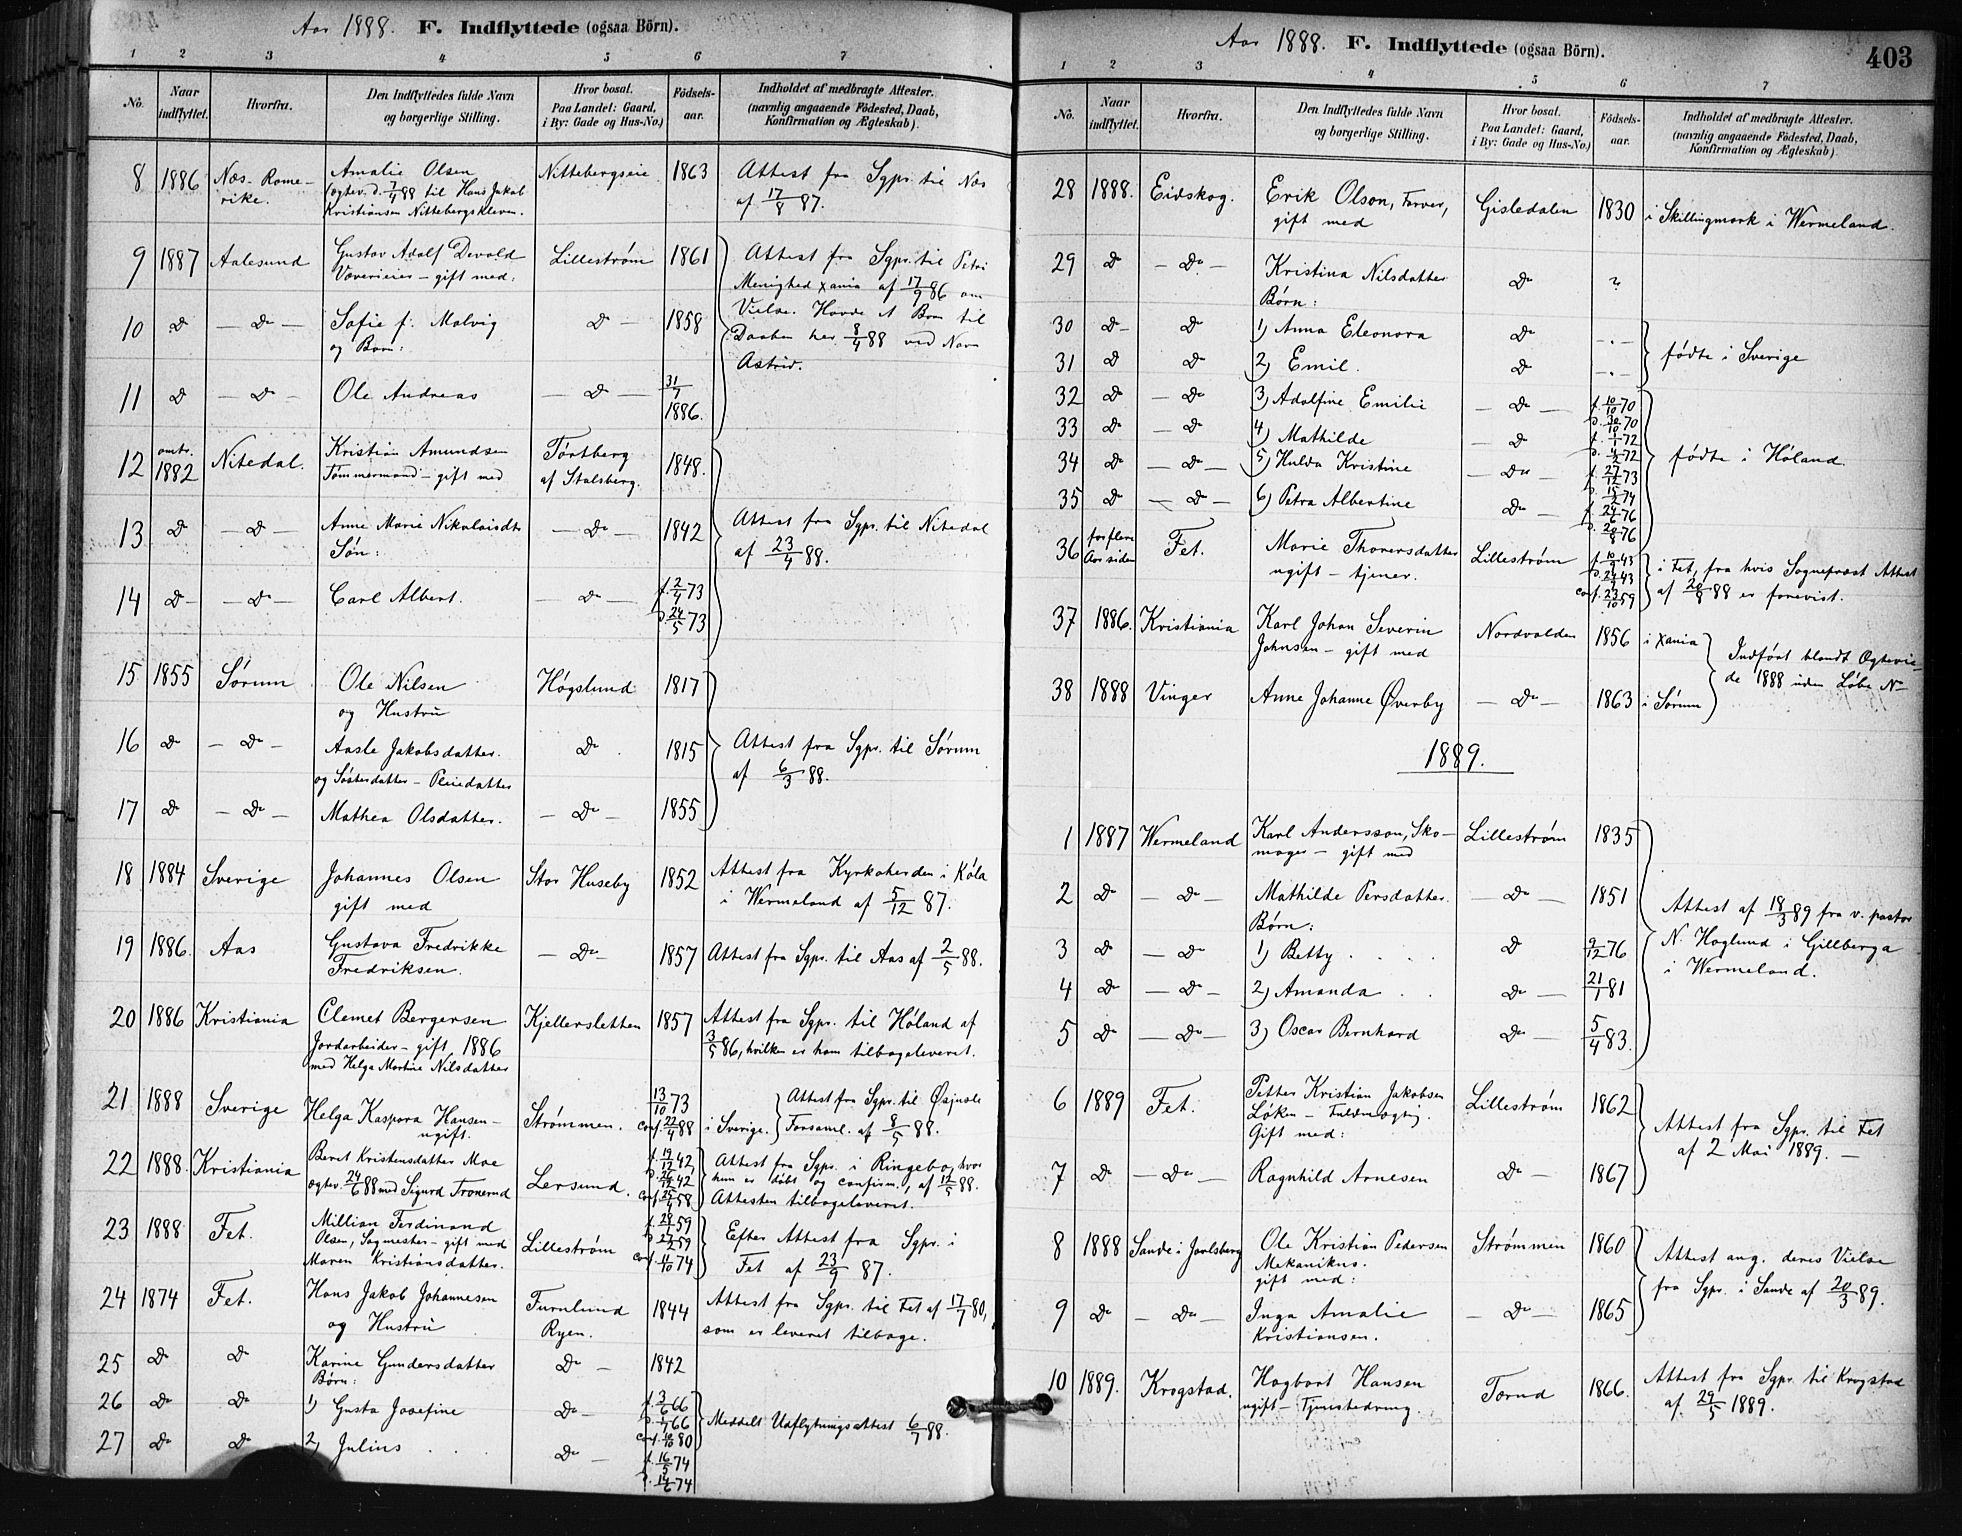 Aar 1888. F. Indflyttede (ogsaa Börn).
1 2 3 4 5 6 7
No. Naar indflyttet. Hvorfra. Den Indflyttedes fulde Navn og borgerlige Stilling. Hvor bosat. Paa Landet: Gaard, i By: Gade og Hus-No.) Födsels-aar. Indholdet af medbragte Attester. (navnlig angaaende Födested, Daab, Konfirmation og Ægteskab).
8 1886 Næs. Rome- Amalie Olsen Nittebergseie 1863 Attest fra Sgpr. til Næs
rike. (ægtev. d. 7/4 88 til Hans Jakob af 17/8 87.
Kristiansen Nittebergskleven.
9 1887 Aalesund Gustav Adolf Devold Lillestrøm 1861 Attest fra Sgpr. til Petri
Væverieier - gift med: Menighed Xania af 17/9 86 om
10 D - Do - Sofie f. Malvig Do - 1858 Vielse. Havde et Barn til
og Barn: Daaben her 8/4 88 ved Navn
Astrid.
11 D - Do - Ole Andreas - Do - 31/7
1886.
12 omtr. 1882 Nitedal. Kristian Amundsen Tørtberg 1848.
Tømmermand - gift med af Stalsberg.
13 D - D - Anne Marie Nikolaisdtr - Do - 1842 Attest fra Sgpr. til Nitedal
Søn: af 23/4 88.
14 D - Do - Carl Albert. - Do - f. 2/4 73
D. 24/5 73
15 1855 Sørum Ole Nilsen Høgslund 1817
og Hustru
16 D - Do - Aasle Jakobsdatter. Do. 1815 Attest fra Sgpr. til Sørum
og Søsterdatter - Pleiedatter af 6/3 88.
17 D - Do - Mathea Olsdatter. - Do - 1855
18 1884 Sverige Johannes Olsen Stor Huseby 1852 Attest fra Kyrkoherden i Köla
gift med i Wermeland af 5/12 87.
19 1886. Aas Gustava Fredrikke - Do - 1857 Attest fra Sgpr. til Aas af 2/5 88.
Fredriksen.
20 1886 Kristiania Clemet Bergersen Kjellersletten 1857 Attest fra Sgpr. til Høland af
Jordarbeider - gift 1886 3/5 86, hvilken er ham tilbageleveret.
med Helga Martine Nilsdatter
21 1888 Sverige Helga Kaspara Hansen - Strømmen. 13/10 73 Attest fra Sgpr. til
ugift. conf. 22/4 88 i Sverige. Forsaml. af 8/5 88.
22 1888. Kristiania Beret Kristensdatter Moe Lersund. f. 19/12 42 Attest fra Sgpr. i Ringebo, hvor
ægtev. 24/6 88 med Sigurd Tronerud D. 26/12 42 hun er døbt og confirm., af 12/5 88.
conf. 25/4 58 Attesten tilbageleveret.
23 1888 Fet. Millian Ferdinand Lillestrøm f. 28/1 59 Efter Attest fra Sgpr. i
Olsen, Sagmester - gift med D. 27/2 59 Fet af 23/9 87.
Maren Kristiansdatter. conf. 4/10 74
24 1874 Fet. Hans Jakob Johannesen Furulund 1844 Attest fra Sgpr. til Fet af 17/7 80,
og Hustru Ryen. som er leveret tilbage.
25 Do D Karine Gundersdatter Do - 1842
Børn:
26 Do Do 1) Gusta Josefine Do - f. 3/6 66 Meddelt Udflytningsattest 6/7 88.
D. 1/7 66
conf. 10/10 80
27 Do Do 2) Julius Do - f. 16/5 74
D. 14/6 74
Aar 1888. F. Indflyttede (ogsaa Börn). 403
1 2 3 4 5 6 7
No. Naar indflyttet. Hvorfra. Den Indflyttedes fulde Navn og borgerlige Stilling. Hvor bosat. Paa Landet: Gaard, i By: Gade og Hus-No.) Födsels-aar. Indholdet af medbragte Attester. (navnlig angaaende Födested, Daab, Konfirmation og Ægteskab).
28 1888. Eidskog. Erik Olson, Farver, Gisledalen 1830 i Skillingmark i Wermeland.
gift med
29 D - Do - Kristina Nilsdatter Do ?
Børn:
30 D - D 1) Anna Eleonora Do - " - fødte i Sverige
31 D D 2) Emil. D - " -
32 D - Do 3) Adolfine Emilie - Do - f. 10/10 70
D. 30/10 70
33 Do - Do 4) Mathilde - D f. 1/1 72
D. 4/2 72 fødte i Høland.
34 Do - Do - 5) Hulda Kristine - Do - f. 27/12 73
D. 15/2 74
35 D - Do - 6) Petra Albertine Do - f. 24/6 76
D. 20/8 76
36 for flere Fet. Marie Thoversdatter Lillestrøm f. 10/9 43 i Fet, fra hvis Sogneprest Attest
Aar siden ugift - tjener. D. 24/9 43 af 20/9 88 er forevist.
conf. 23/10 59
37 1886. Kristiania Karl Johan Severin Nordvolden 1856 i Xania Indført blandt Ægtevie-
Johnsen - gift med de 1888 uden Løbe No
38 1888 Vinger Anne Johanne Øverby - Do - 1863 i Sørum
1889.
1 1887 Wermeland Karl Andersson, Sko- Lillestrøm 1835
mager - gift med
2 D - Do - Mathilde Persdatter. - Do - 1851 Attest af 18/3 89 fra v. pastor
Børn: N. Hoglund i Gillberga
3 D - Do 1) Betty . . . . D 9/12 76 i Wermeland.
4 D - Do - 2) Amanda . . Do - 21/1 81
5 D - Do - 3) Oscar Bernhard Do - 5/4 83.
6 1889 Fet. Petter Kristian Jakobsen Lillestrøm 1862
Løken - Fuldmægtig. Attest fra Sgpr. til Fet
Gift med: af 2 Mai 1889. -
7 D - Do - Ragnhild Arnesen Do - 1867
8 1888 Sande i Jarlsberg Ole Kristian Pedersen Strømmen 1860
Mekanikus. Attest ang. deres Vielse
gift med: fra Sgpr. i Sande af 20/3 89.
9 D - Do - Inga Amalie - Do - 1865
Kristiansen.
10 1889. Krogstad. Hagbart Hansen Tørud 1866. Attest fra Sgpr. til Krogstad
ugift - Tjenestedreng. af 29/5 1889.